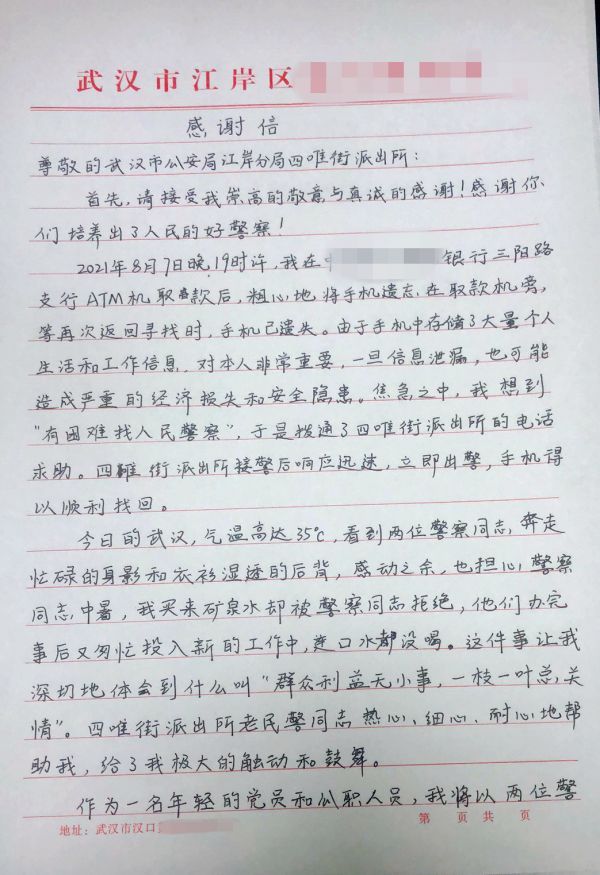 武汉市江岸区
感谢信
尊敬的武汉市公安局江岸分局四唯街派出所：
首先，请接受我崇高的敬意与真诚的感谢！感谢你
们培养出了人民的好警察！
2021年8月7日晚19时许，我在中 银行三阳路
支行ATM机取款后，粗心地将手机遗忘在取款机旁，
等再次返回寻找时，手机已遗失。由于手机中存储了大量个人
生活和工作信息，对本人非常重要，一旦信息泄漏，也可能
造成严重的经济损失和安全隐患。焦急之中，我想到
“有困难找人民警察”，于是拨通了四唯街派出所的电话
求助。四唯街派出所接警后响应迅速，立即出警，手机得
以顺利找回。
今日的武汉，气温高达35℃，看到两位警察同志奔走
忙碌的身影和衣衫湿透的后背，感动之余，也担心警察
同志中暑，我买来矿泉水却被警察同志拒绝，他们办完
事后又匆忙投入新的工作中，连口水都没喝。这件事让我
深切地体会到什么叫“群众利益无小事，一枝一叶总关
情”。四唯街派出所老民警同志热心、细心、耐心地帮
助我，给了我极大的触动和鼓舞。
作为一名年轻的党员和公职人员，我将以两位警
地址：武汉市汉口
第 页 共 页